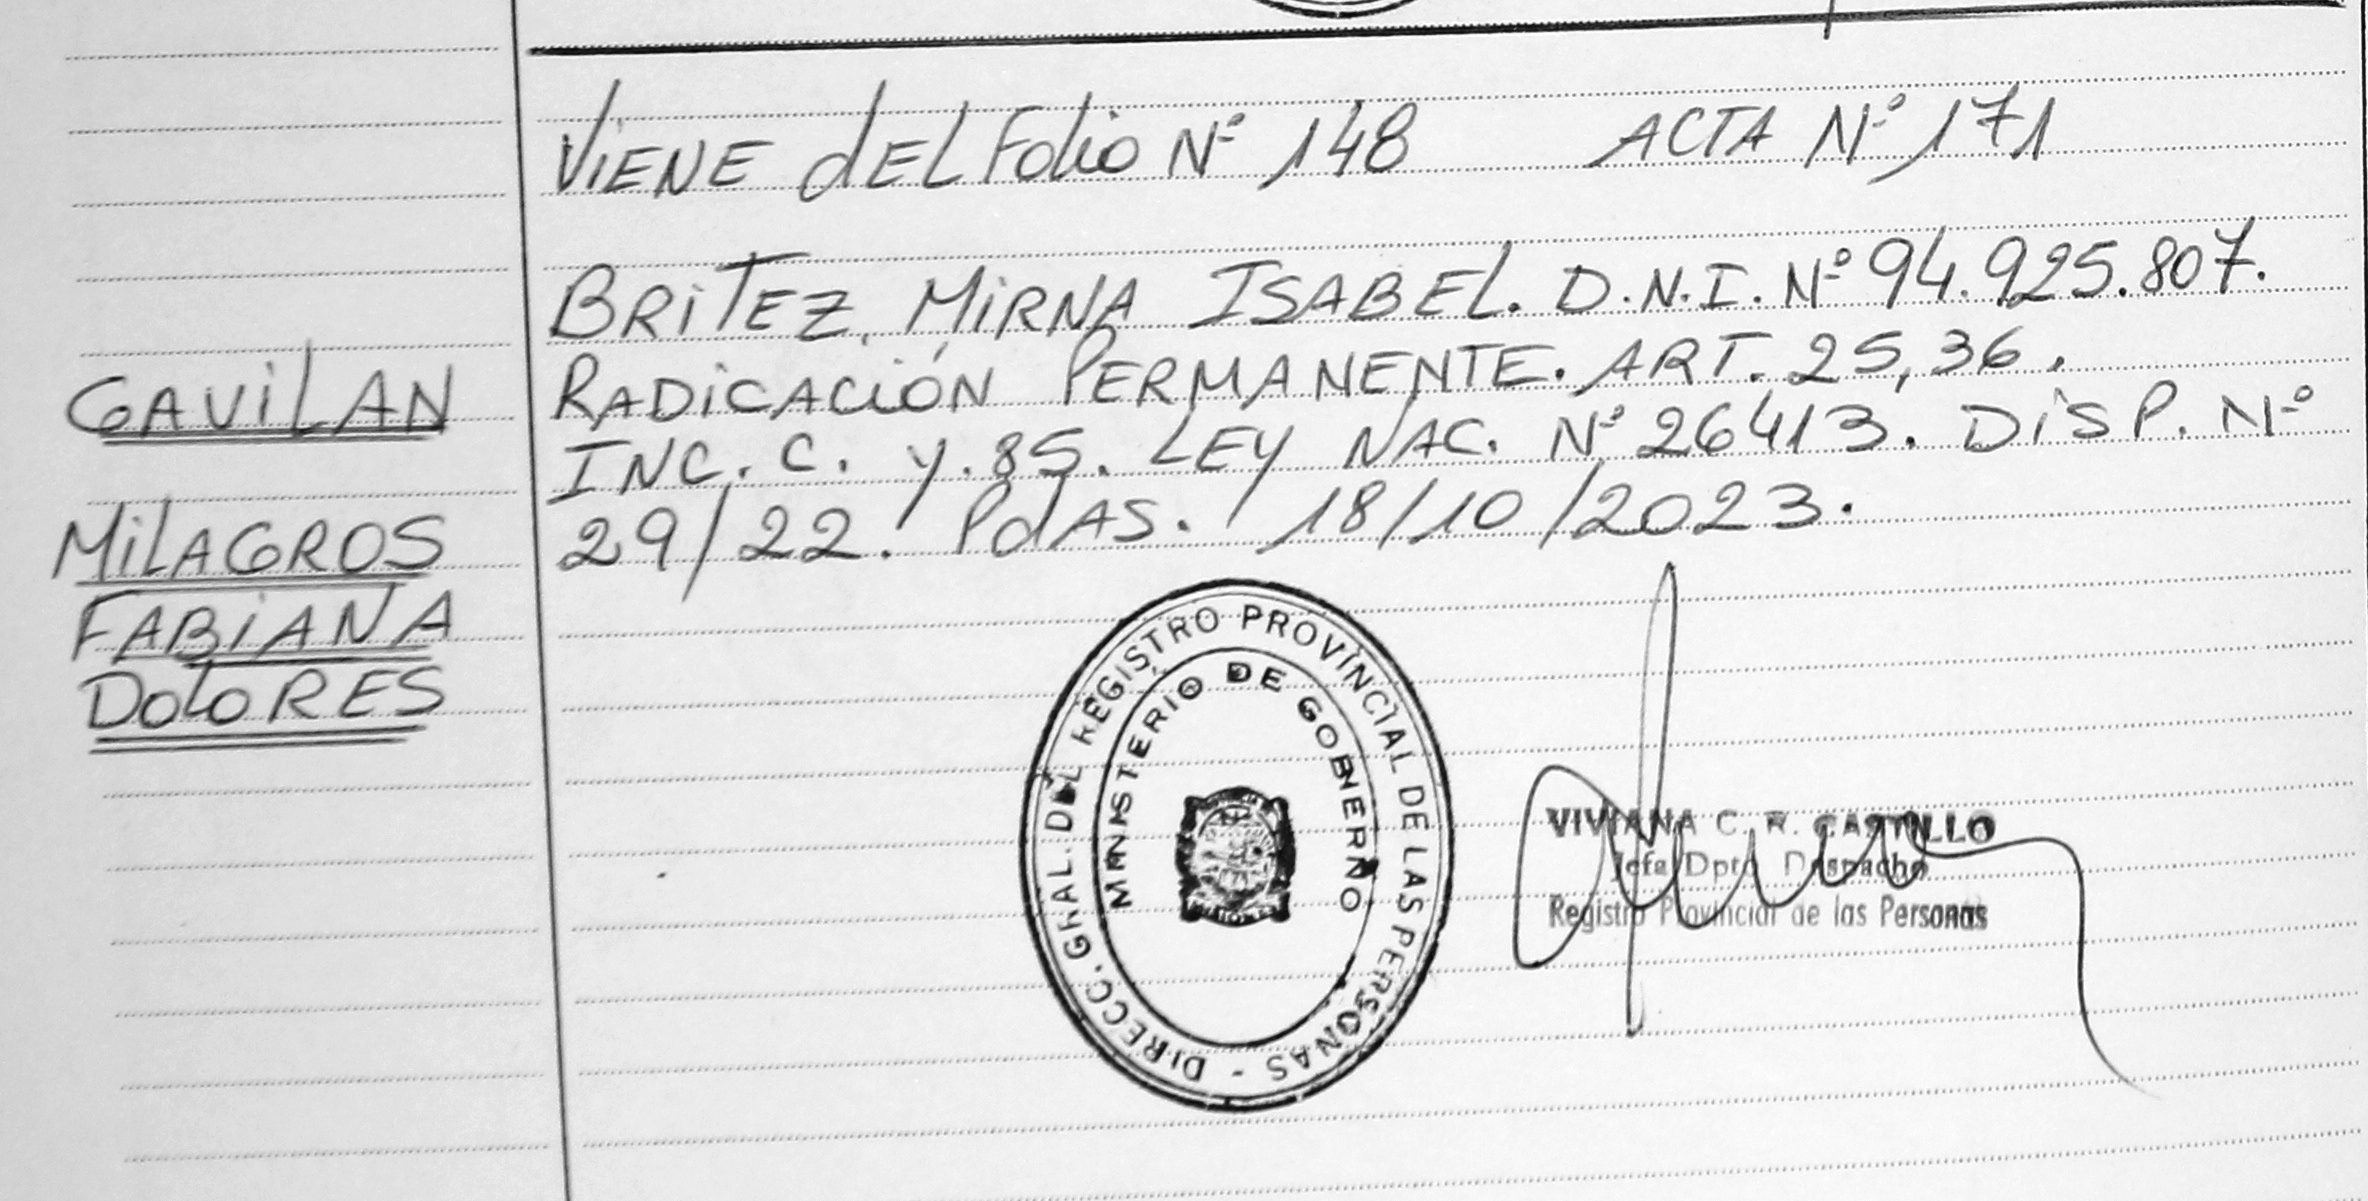 VIENE dEL Folio Nº 148 ACTA Nº 171
BRITEZ, MIRNA ISABEL. D.N.I. Nº 94.925.807.
RADICACIÓN PERMANENTE. ART. 25,36.
INC. C. Y. 85. LEY NAC. Nº 26413. DISP. Nº
29/22. PdAS. 18/10/2023.
GAVILAN
MILAGROS
FABIANA
DOLORES
DIRECC. GRAL. DEL REGISTRO PROVINCIAL DE LAS PERSONAS -
MINISTERIO DE GOBIERNO
VIVIANA C. R. CASTILLO
Jefa Dpto Despacho
Registro Provincial de las Personas